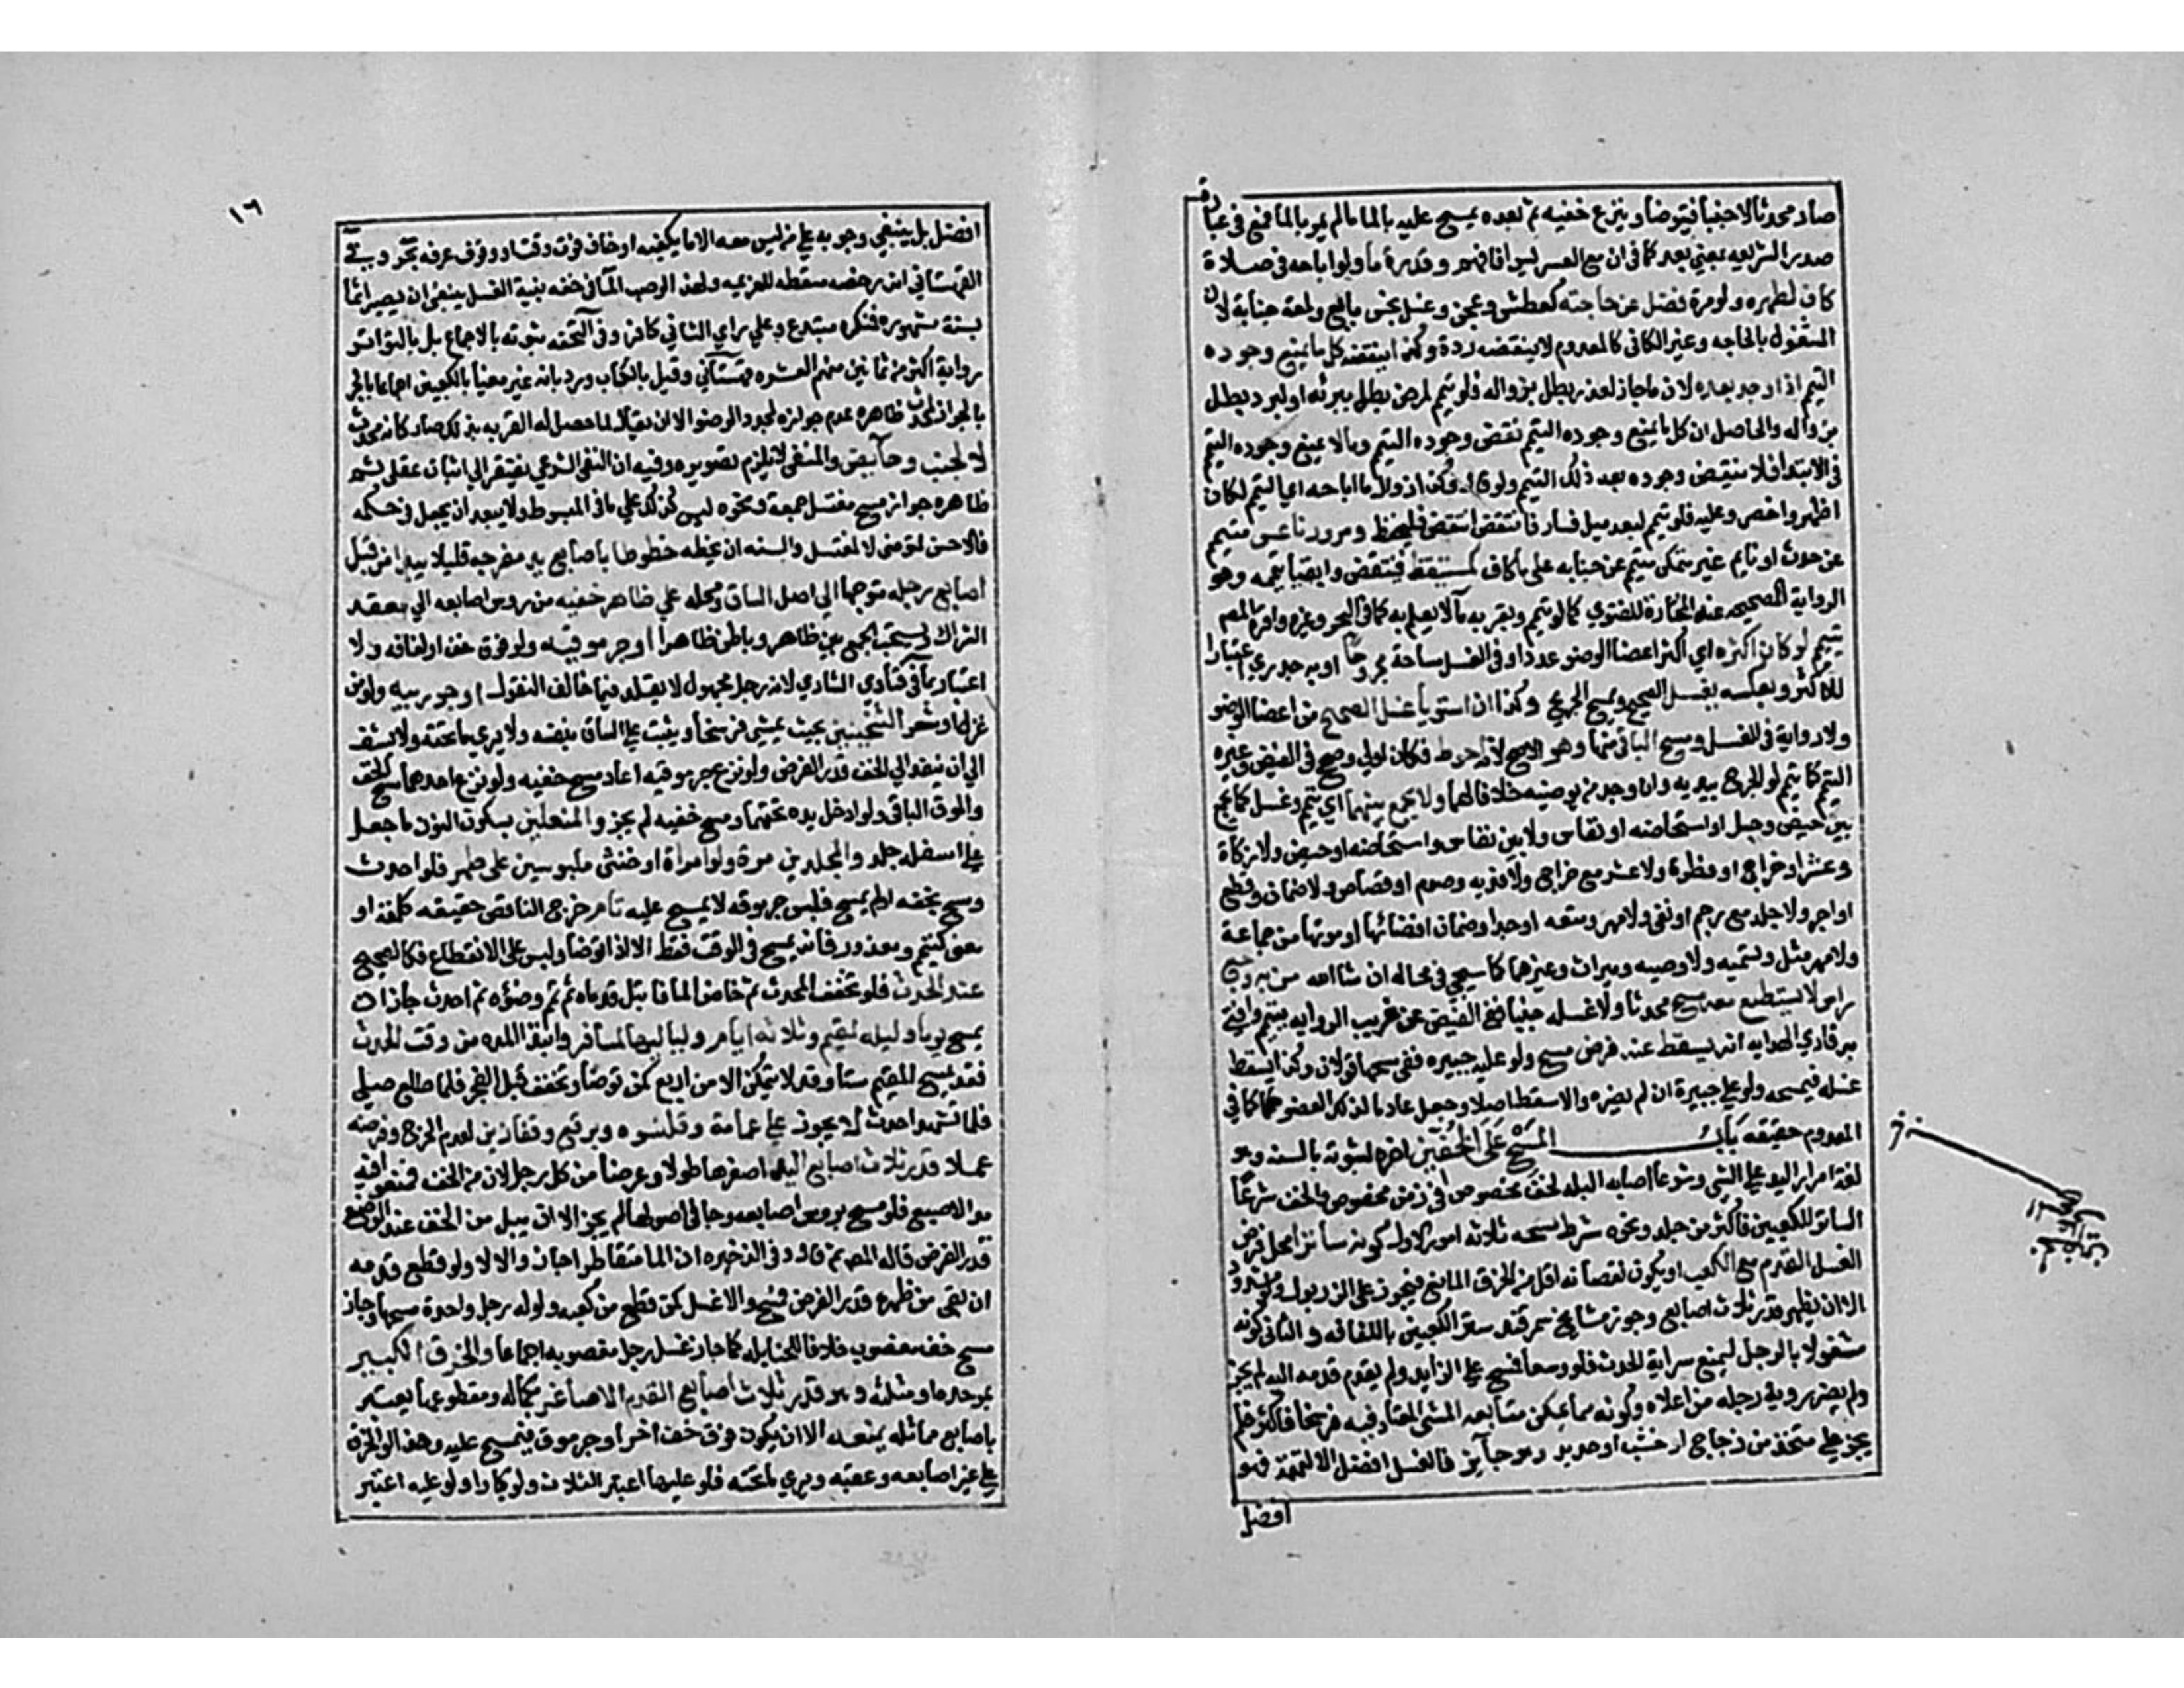 صار محدثا لا جنبا فيتوضأ وينزع خفيه ثم بعده يمسح عليه بالما مالم يمر بالما فمع في عبارة
صدر الشريعه بمعني بعد كما في ان مع العسر يسرا فافهم وقدرة ما ولو اباحه في صلاة
كاف لطهره ولو مرة فضل عن حاجته كعطش وعجن وغسل نجس مانع ولمعة جنابة لان
المشغول بالحاجه وغير الكافي كالمعدوم لا ينقضه ردة وكذا ينقضه كل ما يمنع وجوده
التيمم اذا وجد بعده لان ما جاز لعذر بطل بزواله فلو تيمم لمرض بطل ببرئه او لبرد بطل
بزواله والحاصل ان كل ما يمنع وجوده التيمم نقض وجوده التيمم ومالا يمنع وجوده التيمم
في الابتدا فلا ينقض وجوده بعد ذلك التيمم ولو قال وكذا زوال ما اباحه اي التيمم لكان
اظهر واخصر وعليه فلو تيمم لبعد ميل فسار فانتقض انتقض فليحفظ ومرور ناعس متيمم
عن حدث او نايم غير متمكن متيمم عن جنابه علي ما كاف كمستيقظ فينتقض وابقيا تيممه وهو
الرواية الصحيحه عنه المختارة للفتوي كما لو تيمم وبقربه ما لا يعلم به كما في البحر وغيره واقره المص
تيمم لو كان اكثره اي اكثر اعضا الوضو عددا وفي الغسل مساحة مجروحا او به جدري اعتبارا
للاكثر وبعكسه يغسل الصحيح ويمسح الجريح وكذا ان استويا غسل الصحيح من اعضا الوضو
ولا رواية في الغسل ومسح الباقي منها وهو الاصح لانه احوط فكان اولي وصحح في الفيض وغيره
التيمم كما يتيمم لو الجرح بيديه وان وجد من يوضيه خلافا لهما ولا يجمع بينهما اي تيمم وغسل كما لا يجمع
بين حيض وحبل او استحاضه او نفاس ولا بين نفاس واستحاضه او حيض ولا زكاة
وعشر او خراج او فطرة ولا عشر مع خراج ولا فديه وصوم او قصاص ولا ضمان وقطع
او اجر ولا جلد مع رجم او نفي ولا مهر ومتعه او حد او ضمان افضائها او موتها من جماعة
ولا مهر مثل وتسميه ولا وصيه وميراث وغيرها كما سيجي في محاله ان شا الله من به وجع
راس لا يستطيع معه مسحه محدثا ولا غسله جنبا ففي الفيض عن غريب الروايه يتيمم وافتي
قاري الهدايه انه يسقط عنه فرض مسحه ولو عليه جبيره ففي مسحها قولان وكذا يسقط
غسله فيمسحه ولو علي جبيرة ان لم يضره والا سقط اصلا وجعل عادما لذلك العضو حكما كما في
المعدوم حقيقه باب المسح على الخفين اخره لثبوته بالسنه وهو
لغة امرار اليد علي الشي وشرعا اصابه البله لخف مخصوص في زمن مخصوص والخف شرعا
الساتر للكعبين فاكثر من جلد ونحوه شرط مسحه ثلاثه امور الاول كونه ساتر محل فرض
الغسل القدم مع الكعب او يكون نقصانه اقل من الخرق المانع فيجوز علي الزربول ولو مشدودا
الا ان يظهر قدر ثلاث اصابع وجوز مشايخ سمرقند ستر الكعبين باللفافه والثاني كونه
مشغولا بالرجل ليمنع سراية الحدث فلو واسعا فمسح علي الزايد ولم يقدم قدمه اليه لم يجز
ولم يضر روية رجله من اعلاه وكونه مما يمكن متابعه المشي المعتاد فيه فرسخا فاكثر فلم
يجز علي متخذ من زجاج او خشب او حديد وهو جايز فالغسل افضل الا لتهمة فهو
افضل
١٦
افضل بل ينبغي وجوبه علي من ليس معه الا ما يكفيه او خاف فوت وقت او وقوف عرفه بحر وفي
القهستاني انه رخصه مسقطه للعزيمه ولهذا لو صب الما في خفه بنية الغسل ينبغي ان يصير اثما
بسنة مشهوره فمنكره مبتدع وعلي راي الثاني كافر وفي التحفه ثبوته بالاجماع بل بالتواتر
رواية اكثر من ثمانين منهم العشره قهستاني وقيل بالكتاب ورد بانه غير مغيا بالكعبين اجماعا بالجر
بالجوار لمحدث ظاهره عدم جوازه لمجدد الوضو الا ان يقال لما حصل له القربه بذلك صار كانه محدث
لا لجنب وحايض والمنفي لا يلزم تصويره وفيه ان النفي الشرعي يفتقر الي اثبات عقلي ثم
ظاهره جواز مسح مغتسل جمعة ونحوه ليس كذلك علي ما في المبسوط ولا يبعد ان يجعل في حكمه
فالاحسن لمتوضي لا لمغتسل والسنه ان يخطه خطوطا باصابع يد مفرجه قليلا يبدا من قبل
اصابع رجله متوجها الي اصل الساق ومحله علي ظاهر خفيه من روس اصابعه الي معقد
الشراك ويستحب الجمع بين ظاهر وباطن ظاهر او جرموقيه ولو فوق خف او لفافه ولا
اعتبار بما في فتاوي الشاذي لانه رجل مجهول لا يقلد فيما خالف النقول او جوربيه ولو من
غزل او شعر الثخينين بحيث يمشي فرسخا ويثبت علي الساق بنفسه ولا يري ما تحته ولا يشف
الي ان ينفذ الي الخف قدر الفرض ولو نزع جرموقيه اعاد مسح خفيه ولو نزع احدهما مسح الخف
والموق الباقي ولو ادخل يده تحتهما ومسح خفيه لم يجز والمنعلين بسكون النون ما جعل
علي اسفله جلد والمجلدين مرة ولو امراة او خنثى ملبوسين على طهر فلو احدث
ومسح بخفه او لم يمسح فلبس جرموقه لا يمسح عليه تام خرج الناقص حقيقه كلمعه او
معني كتيمم ومعذور فانه يمسح في الوقت فقط الا اذا توضا ولبس على الانقطاع فكالصحيح
عند الحدث فلو تخفف المحدث ثم خاض الما فابتل قدماه ثم تمم وضوه ثم احدث جاز ان
يمسح يوما وليله لمقيم وثلاثه ايام ولياليها لمسافر وابتدا المده من وقت الحدث
فقد يمسح المقيم ستا وقد لا يتمكن الا من اربع كمن توضا وتخفف قبل الفجر فلما طلع صلي
فلما تشهد احدث لا يجوز علي عمامة وقلنسوه وبرقع وقفازين لعدم الحرج وفرضه
عملا قدر ثلاث اصابع اليد اصغرها طولا وعرضا من كل رجل لا من الخف فمنعوا فيه
مد الاصبع فلو مسح بروس اصابعه وجافي اصولها لم يجز الا ان يبتل من الخف عند الوضع
قدر الفرض قاله المص ثم قال وفي الذخيره ان الما متقاطرا جاز والا لا ولو قطع قدمه
ان بقي من ظهره قدر الفرض مسح والا غسل كمن قطع من كعبه ولو له رجل واحدة مسحها وجاز
مسح خف مغصوب خلافا للحنابله كما جاز غسل رجل مغصوبه اجماعا والخرق الكبير
بموحده او مثلثه وهو قدر ثلاث اصابع القدم الاصاغر بكمالها ومقطوعها يعتبر
باصابع مماثله يمنعه الا ان يكون فوق خف اخر او جرموق فيمسح عليه وهذا لو الخرق
علي غير اصابعه وعقبه ويري ما تحته فلو عليها اعتبر الثلاث ولو كبارا ولو عليه اعتبر